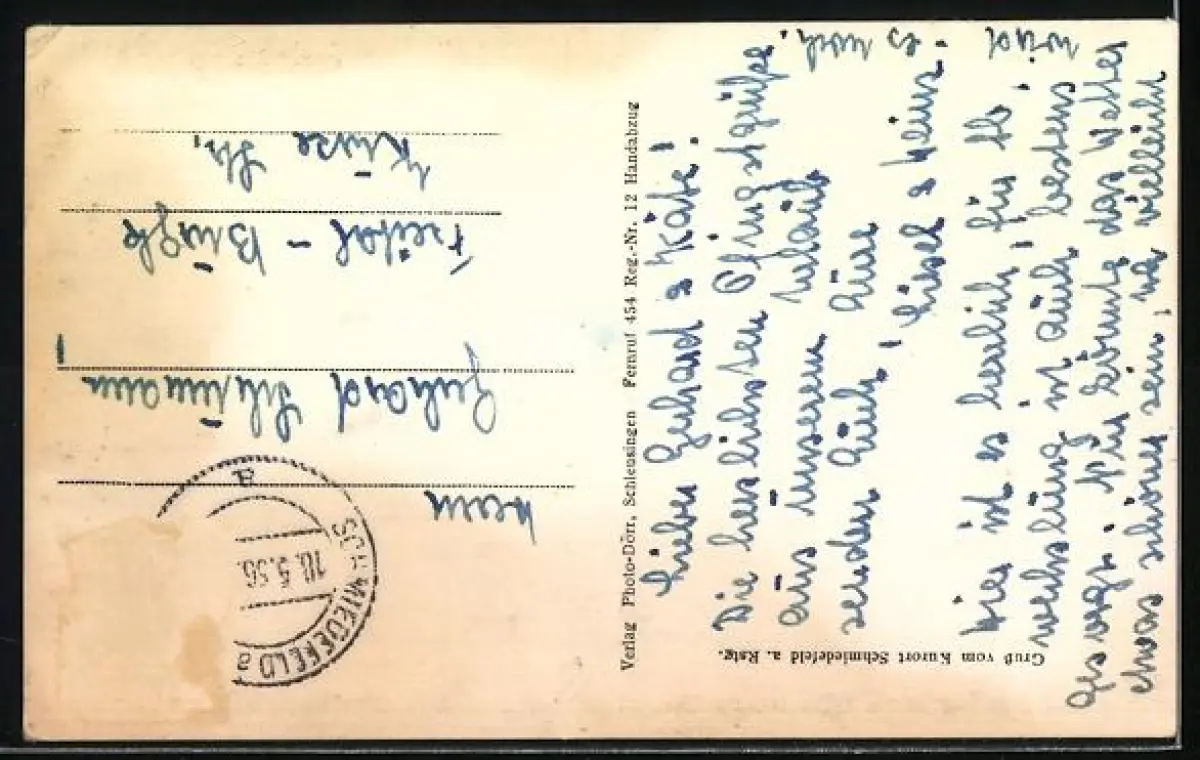 Gruß vom Kurort Schmiedefeld a. Rstg.
Lieber Gerhard & Käte!
Die herzlichsten Pfingstgrüße
aus unserem Urlaub
senden Euch, Eure
Liesel & Heinz
Hier ist es herrlich, für Ab-
wechslung ist auch bestens
gesorgt. Nur könnte das Wetter
etwas schöner sein, na vielleicht
wird es noch.
Verlag Photo-Dörr, Schleusingen Fernruf 454 Reg.-Nr. 12 Handabzug
SCHMIEDEFELD
a
18.5.56.
a
Herrn
Gerhard
Freital - Burgk
Str.